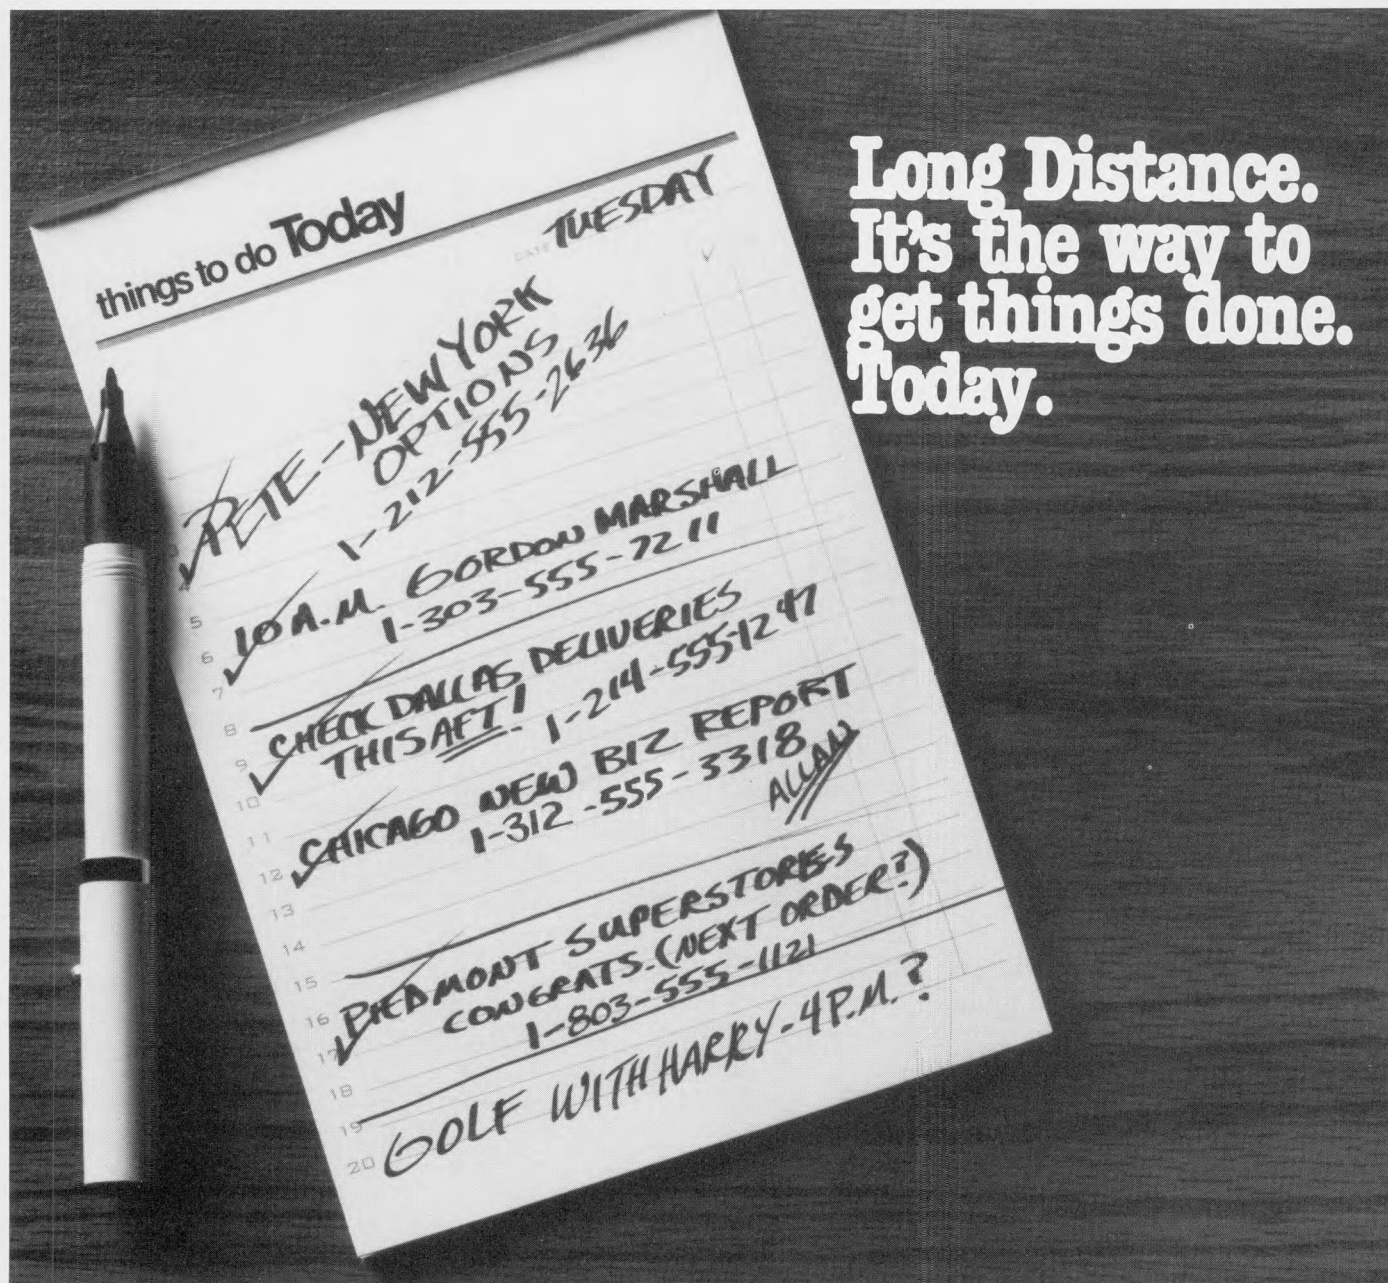 things to do Today
DATE TUESDAY
PETE - NEW YORK
OPTIONS
1-212-555-2636
10 A.M. GORDON MARSHALL
1-303-555-7211
CHECK DALLAS DELIVERIES
THIS AFT! 1-214-555-1247
CHICAGO NEW BIZ REPORT
1-312-555-3318
ALLAN
PIEDMONT SUPERSTORES
CONGRATS. (NEXT ORDER?)
1-803-555-1121
GOLF WITH HARRY - 4 P.M.?
5
6
7
8
9
10
11
12
13
14
15
16
17
18
19
20
Long Distance.
It's the way to
get things done.
Today.